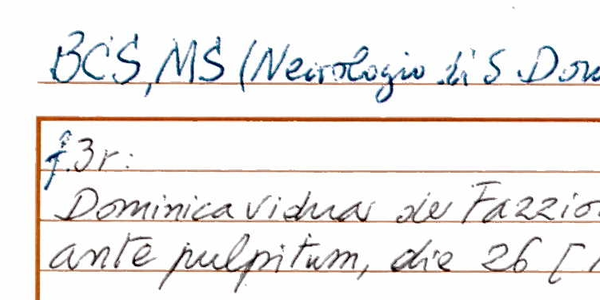 BCS, MS (Necrologio di S Dom
f. 3r:
Dominica vidua de Fazzio
ante pulpitum, die 26 [